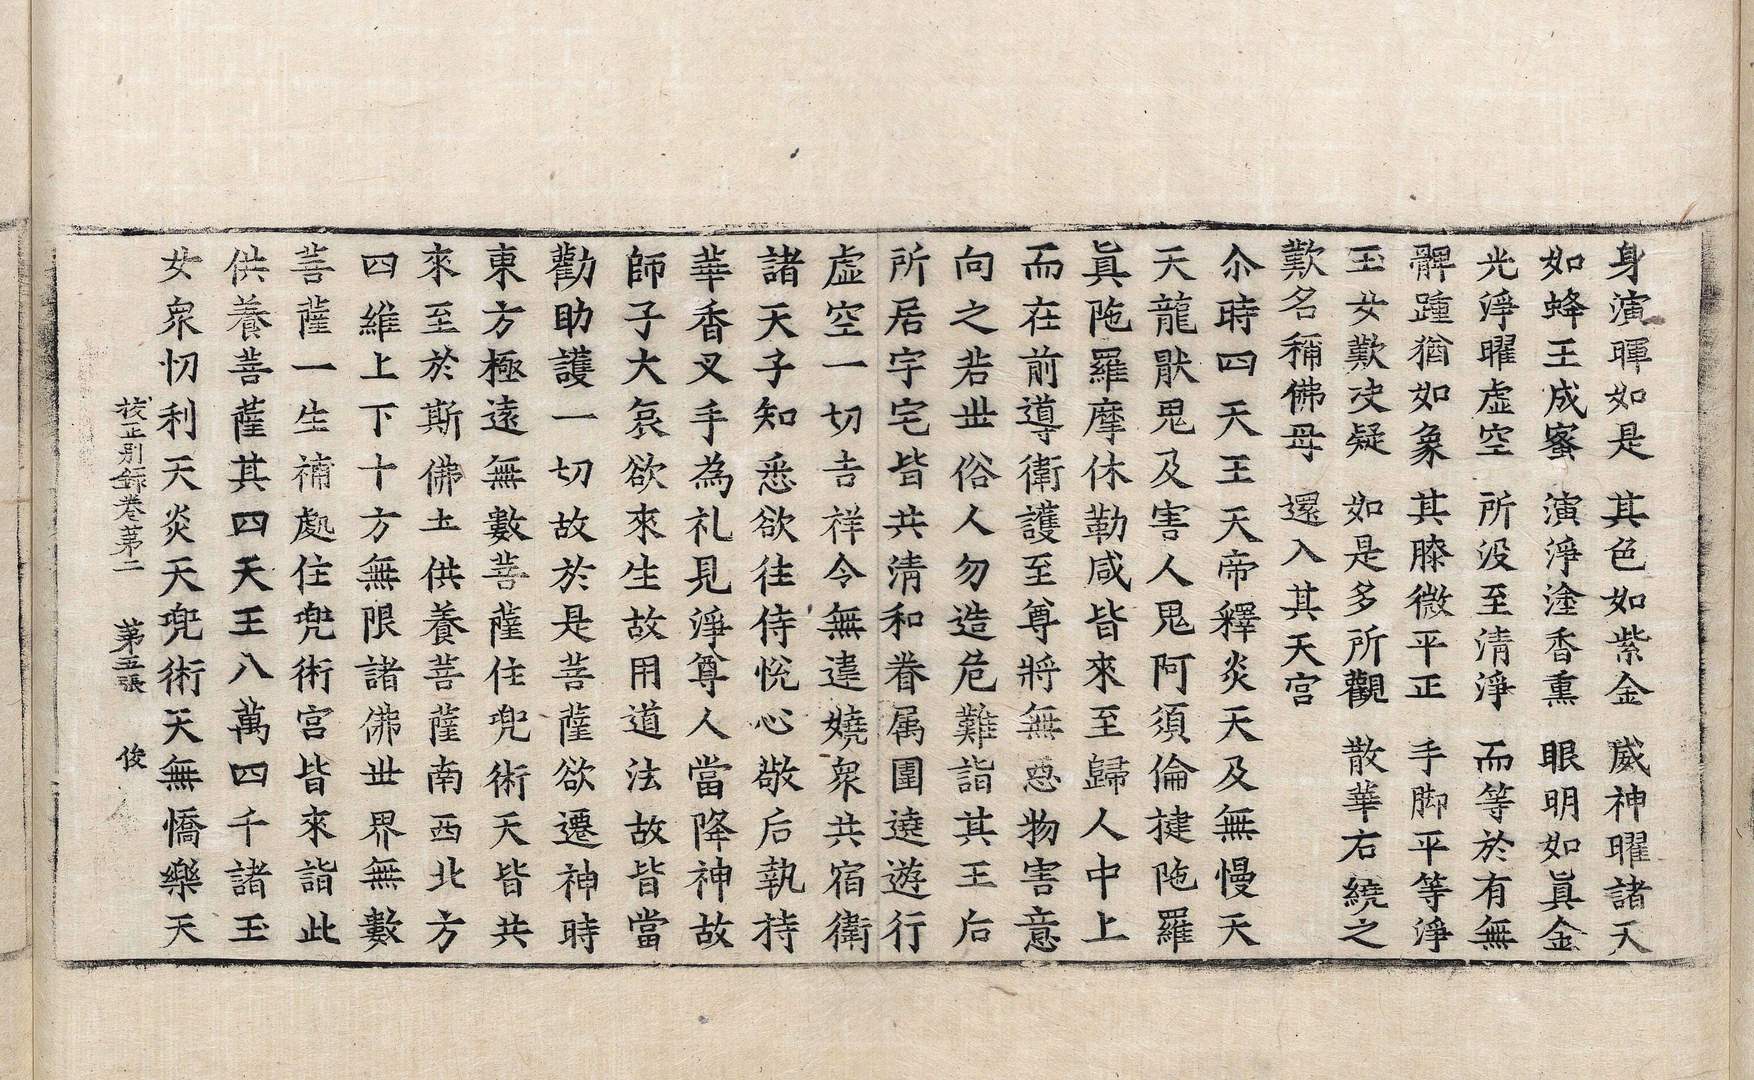 身演暉如是 其色如紫金 威神曜諸天
如蜂王成蜜 演淨塗香熏 眼明如眞金
光淨曜虛空 所沒至清淨 而等於有無
髀踵猶如象 其膝微平正 手脚平等淨
玉女歎決疑 如是多所觀 散華右繞之
歎名稱佛母 還入其天宮
尒時四天王天帝釋炎天及無慢天
天龍猒鬼及害人鬼阿須倫揵陁羅
眞陁羅摩休勒咸皆來至歸人中上
而在前導衛護至尊將無惡物害意
向之若世俗人勿造危難詣其王后
所居宇宅皆共清和眷属圍遶遊行
虛空一切吉祥令無違嬈衆共宿衛
諸天子知悉欲往侍悅心敬后執持
華香叉手為礼見淨尊人當降神故
師子大哀欲來生故用道法故皆當
勸助護一切故於是菩薩欲遷神時
東方極遠無數菩薩住兜術天皆共
來至於斯佛土供養菩薩南西北方
四維上下十方無限諸佛世界無數
菩薩一生補處住兜術宮皆來詣此
供養菩薩其四天王八萬四千諸玉
女衆忉利天炎天兜術天無憍樂天
校正別錄卷第二 第五張 俊